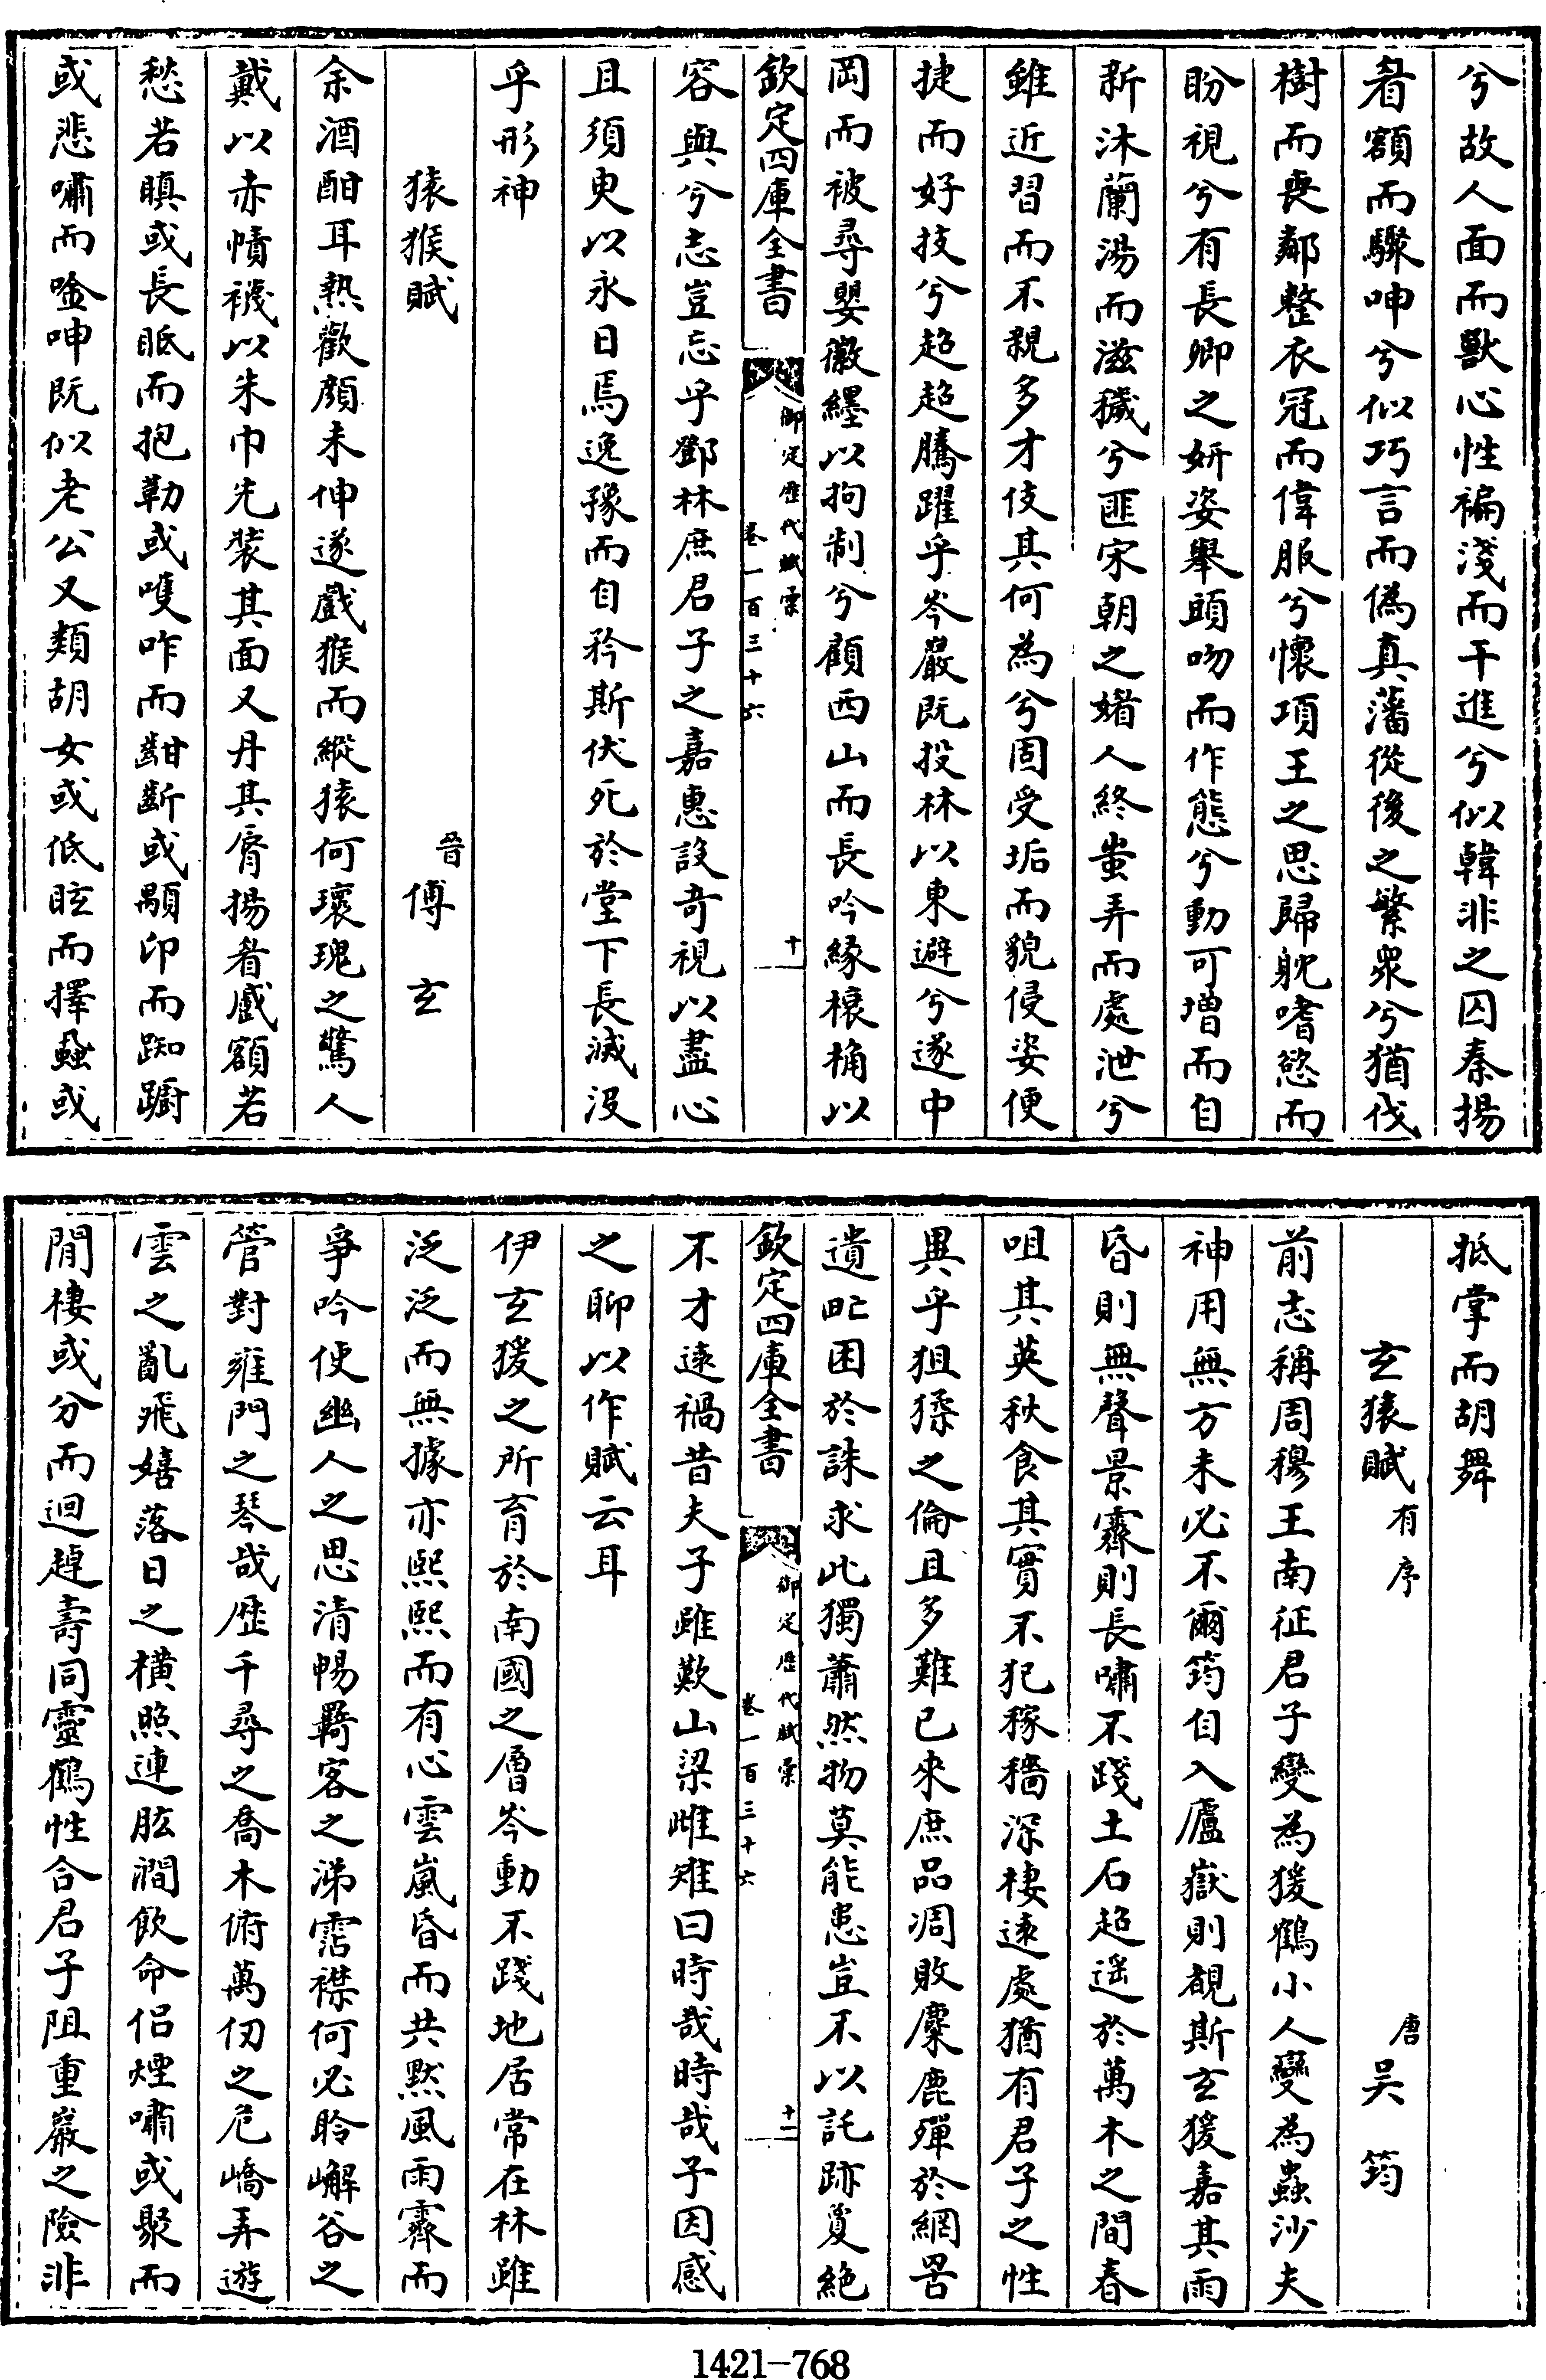 兮故人面而獸心性褊淺而干進兮似韓非之囚秦揚
眷額而驟呻兮似巧言而偽真藩從後之繁衆兮猶伐
樹而喪鄰整衣冠而偉服兮懷項王之思歸躭嗜慾而
盼視兮有長卿之妍姿舉頭吻而作態兮動可增而自
新沐蘭湯而滋穢兮匪宋朝之媚人終蚩弄而處泄兮
雖近習而不親多才伎其何為兮固受垢而貌侵姿便
捷而好技兮超超騰躍乎岑巖既投林以東避兮遂中
岡而被尋嬰徽纆以拘制兮顧西山而長吟緣榱桷以
欽定四庫全書
御定歷代賦彚
卷一百三十六
十
容與兮志豈忘乎鄧林庶君子之嘉惠設奇視以盡心
且須臾以永日焉逸豫而自矜斯伏死於堂下長滅沒
乎形神
猿猴賦
晉傅玄
余酒酣耳熱歡顔未伸遂戲猴而縱猿何瓌瑰之驚人
戴以赤幘襪以朱巾先裝其面又丹其脣揚眷蹙額若
愁若瞋或長眡而抱勒或嚄咋而齟齗或顒卬而踟蹰
或悲嘯而唫呻既似老公又類胡女或低眩而擇蝨或
抵掌而胡舞
玄猿賦有序
唐吴筠
前志稱周穆王南征君子變為猨鶴小人變為蟲沙夫
神用無方未必不爾筠自入廬嶽則覩斯玄猨嘉其雨
昏則無聲景霽則長嘯不踐土石超遥於萬木之間春
咀其英秋食其實不犯稼穡深棲遠處猶有君子之性
異乎狙猱之倫且多難已來庶品凋敗麋鹿殫於網罟
遺甿困於誅求此獨蕭然物莫能患豈不以託跡夐絶
欽定四庫全書
御定歷代賦彚
卷一百三十六
十一
不才遠禍昔夫子雖歎山梁雌雉曰時哉時哉予因感
之聊以作賦云耳
伊玄猨之所育於南國之層岑動不踐地居常在林雖
泛泛而無據亦熙熙而有心雲嵐昏而共默風雨霽而
爭吟使幽人之思清暢羇客之涕霑襟何必聆嶰谷之
管對雍門之琴哉歷千尋之喬木俯萬仞之危嶠弄遊
雲之亂飛嬉落日之橫照連肱澗飲命侣煙嘯或聚而
閒棲或分而迴趠壽同靈鶴性合君子阻重巖之險非
1421-768